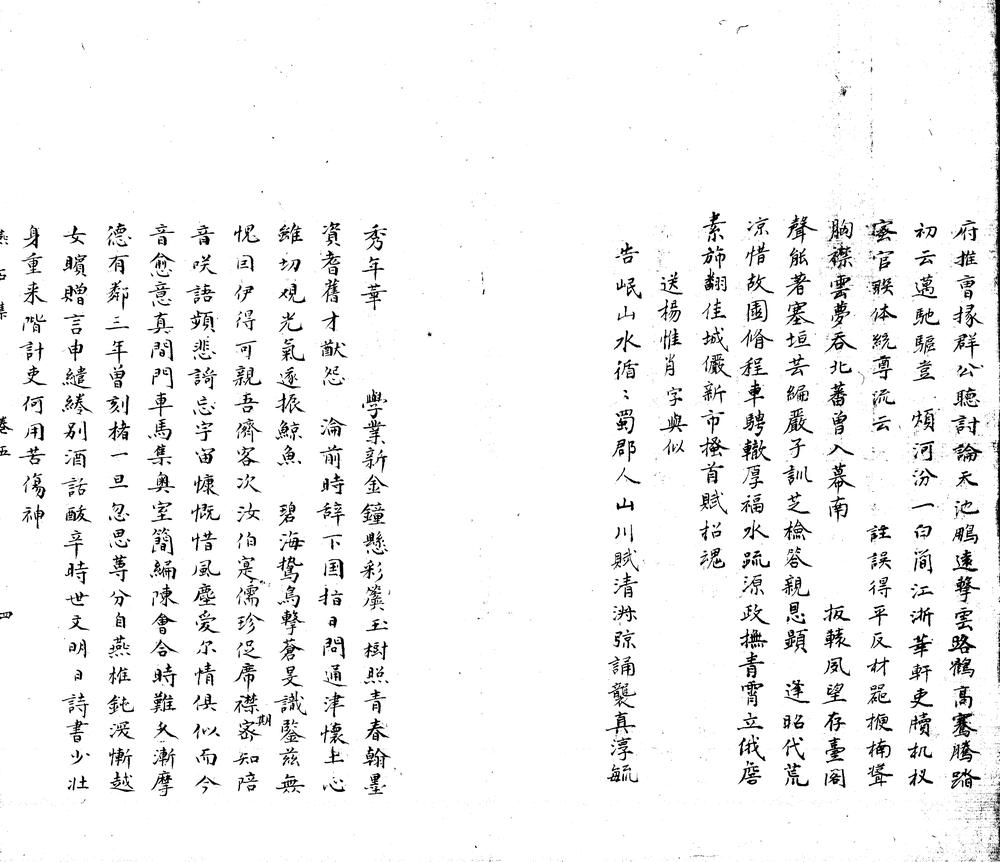 府推曹掾群公聽討論天池鵬遠擊雲路鶴高騫騰踏
初云邁馳驅豈　煩河汾一白簡江浙華軒吏牘机杈
蜜官聨体統尊流云　　詿誤得平反材器楩楠聳
胸襟雲夢吞北蕃曾入幕南　　扳轅風望存臺閣
聲能著塞垣芸編嚴子訓芝檢答親恩顕　逢昭代荒
凉惜故園脩程車騁轍厚福水疏源政撫青霄立俄磨
素斾翻佳城儼新市搔首賦招魂
送楊惟肖字與似
告岷山水循〻蜀郡人山川賦清淑弦誦襲真淳毓
秀年華　　學業新金鐘懸彩簴玉樹照青春翰墨
資耆舊才猷怨　淪前時辞下国指日問通津懷土心
維切观光氣逐振鯨魚　碧海鷙鳥擊蒼旻識鑒兹無
怳因伊得可親吾儕客次汝伯寔儒珍促席襟期家知陪
音咲語頻悲謌忘宇宙慷慨惜風塵爱尔情俱似而今
音愈意真閭門車馬集奥室簡編陳會合時難久漸摩
德有鄰三年曽刻楮一旦忽思蓴分自燕樵鈍深慚越
女矉贈言申繾綣别酒話酸辛時世文明日詩書少壮
身重来階計吏何用苦傷神
燕石集　　卷五　　四